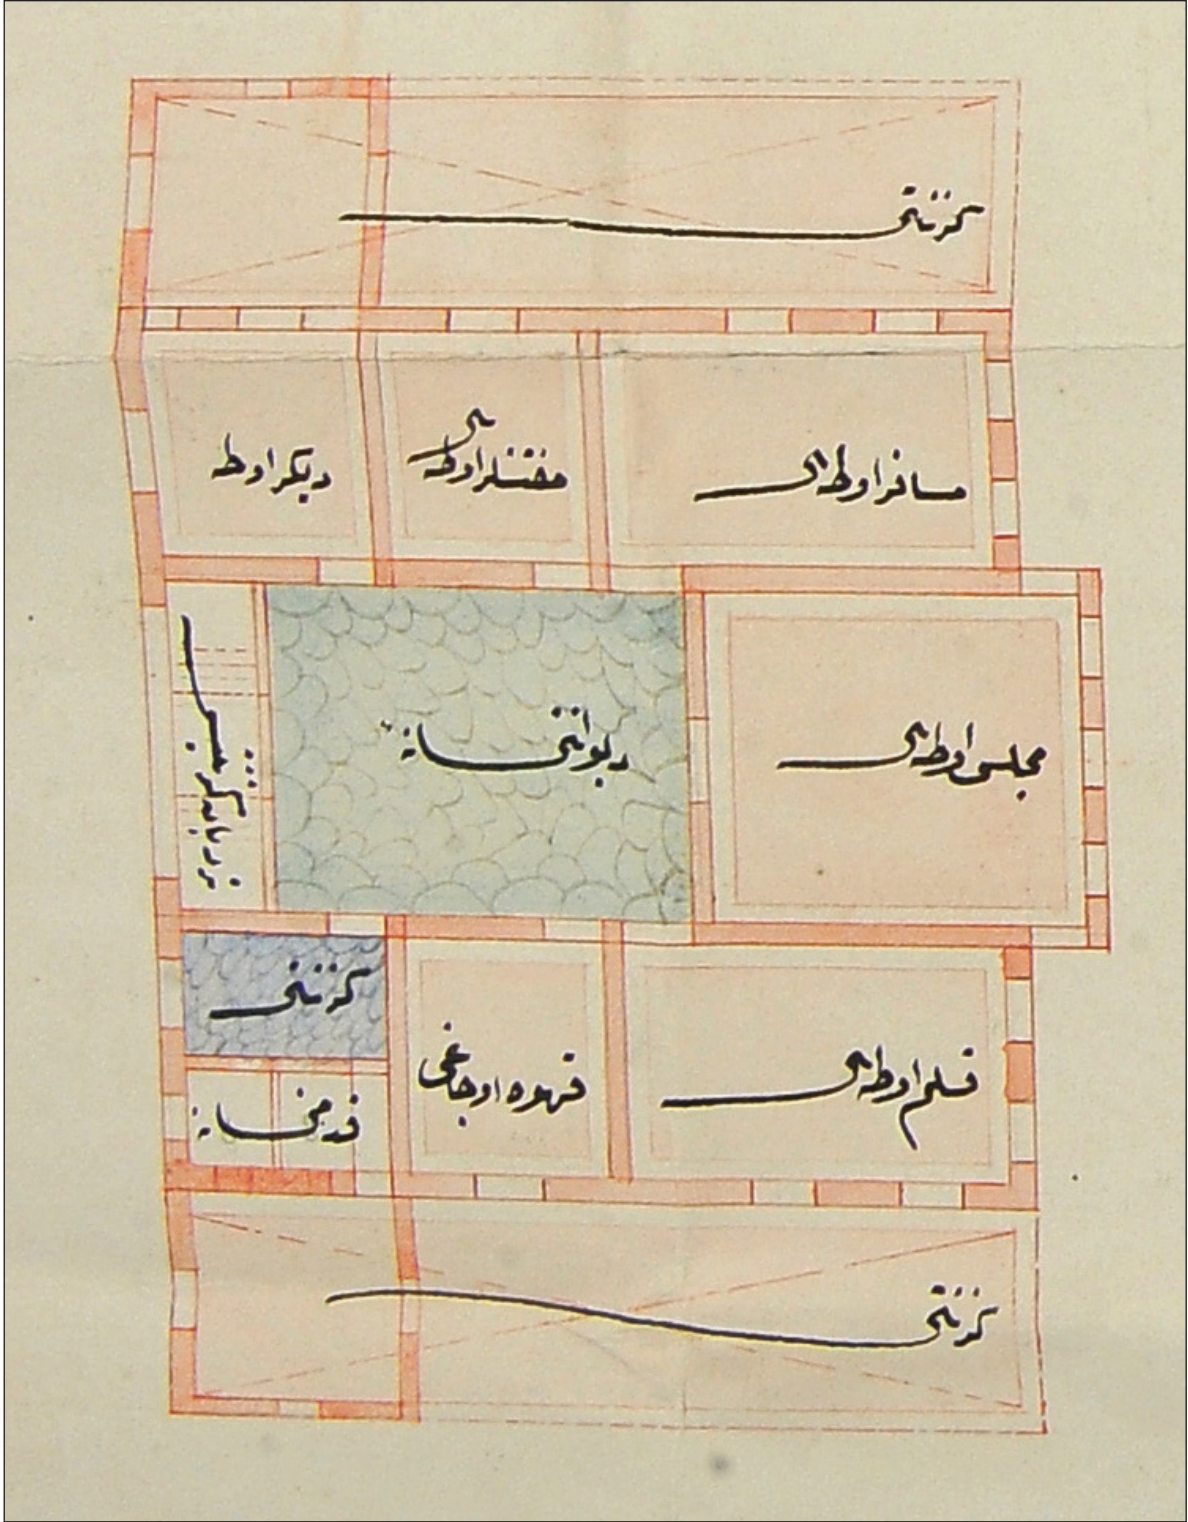 كزنتى
مسافر اوطه‌سى
مفتشلر اوطه‌سى
ديكر اوطه
مجلس اوطه‌سى
ديوانخانه
نردبان
قلم اوطه‌سى
قهوه اوجاغى
كزنتى
قدمخانه
كزنتى